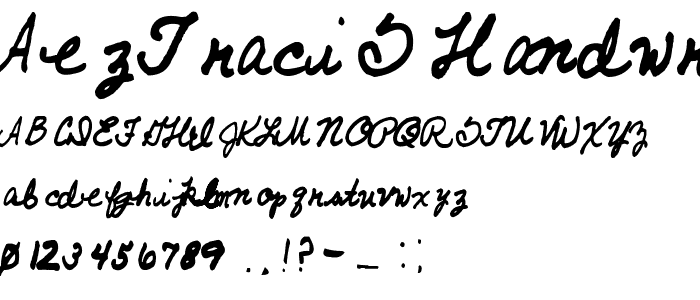 AezTraciSHandwr
ABCDEFGHIJKLMNOPQRSTUVWXYZ
abcdefghijklmnopqrstuvwxyz
0123456789 .,!?-_:;